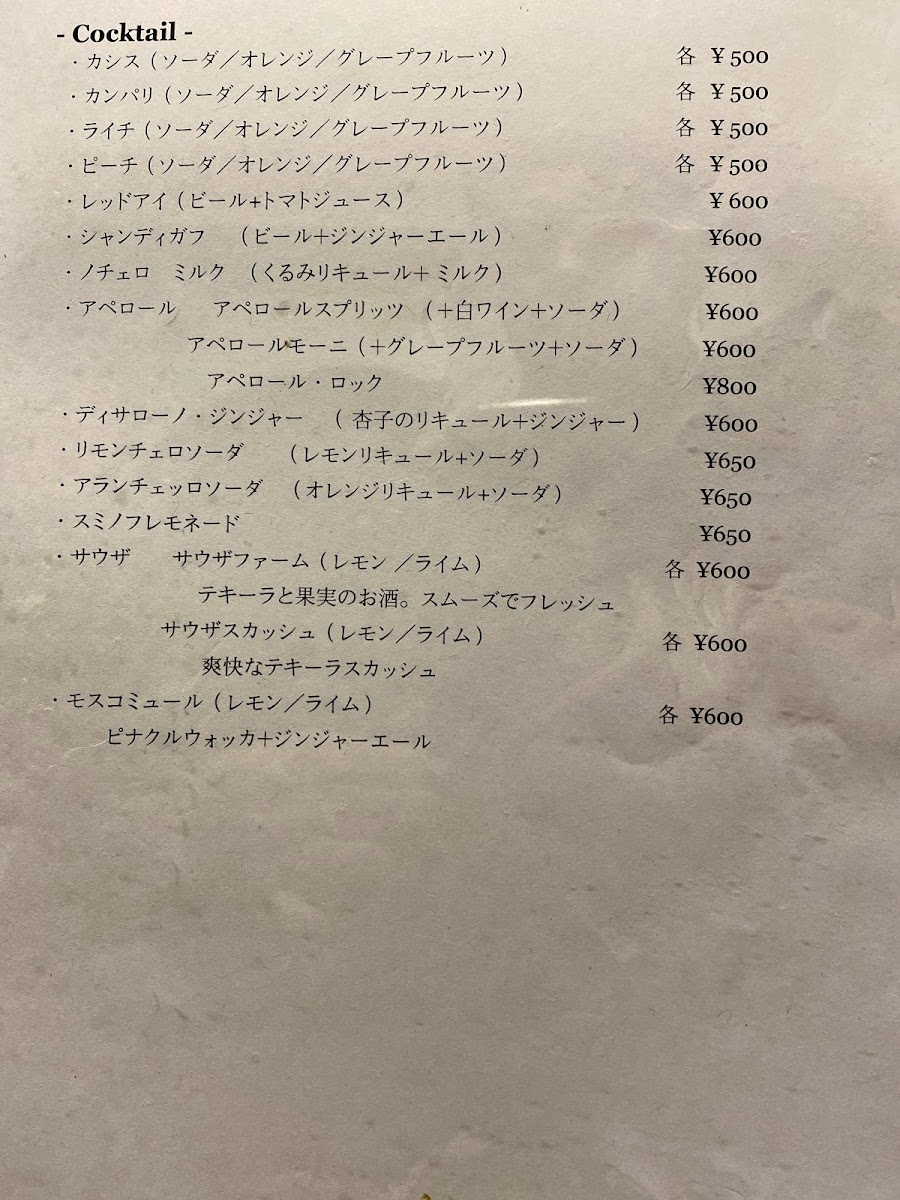 - Cocktail -
・カシス（ソーダ／オレンジ／グレープフルーツ） 各 ¥500
・カンパリ（ソーダ／オレンジ／グレープフルーツ） 各 ¥500
・ライチ（ソーダ／オレンジ／グレープフルーツ） 各 ¥500
・ピーチ（ソーダ／オレンジ／グレープフルーツ） 各 ¥500
・レッドアイ（ビール+トマトジュース） ¥600
・シャンディガフ （ビール＋ジンジャーエール） ¥600
・ノチェロ ミルク （くるみリキュール＋ミルク） ¥600
・アペロール アペロールスプリッツ （＋白ワイン＋ソーダ） ¥600
アペロールモーニ（＋グレープフルーツ＋ソーダ） ¥600
アペロール・ロック ¥800
・ディサローノ・ジンジャー （杏子のリキュール＋ジンジャー） ¥600
・リモンチェロソーダ （レモンリキュール+ソーダ） ¥650
・アランチェッロソーダ （オレンジリキュール+ソーダ） ¥650
・スミノフレモネード ¥650
・サウザ サウザファーム（レモン ／ライム） 各 ¥600
テキーラと果実のお酒。スムーズでフレッシュ
サウザスカッシュ（レモン／ライム） 各 ¥600
爽快なテキーラスカッシュ
・モスコミュール（レモン／ライム） 各 ¥600
ピナクルウォッカ＋ジンジャーエール